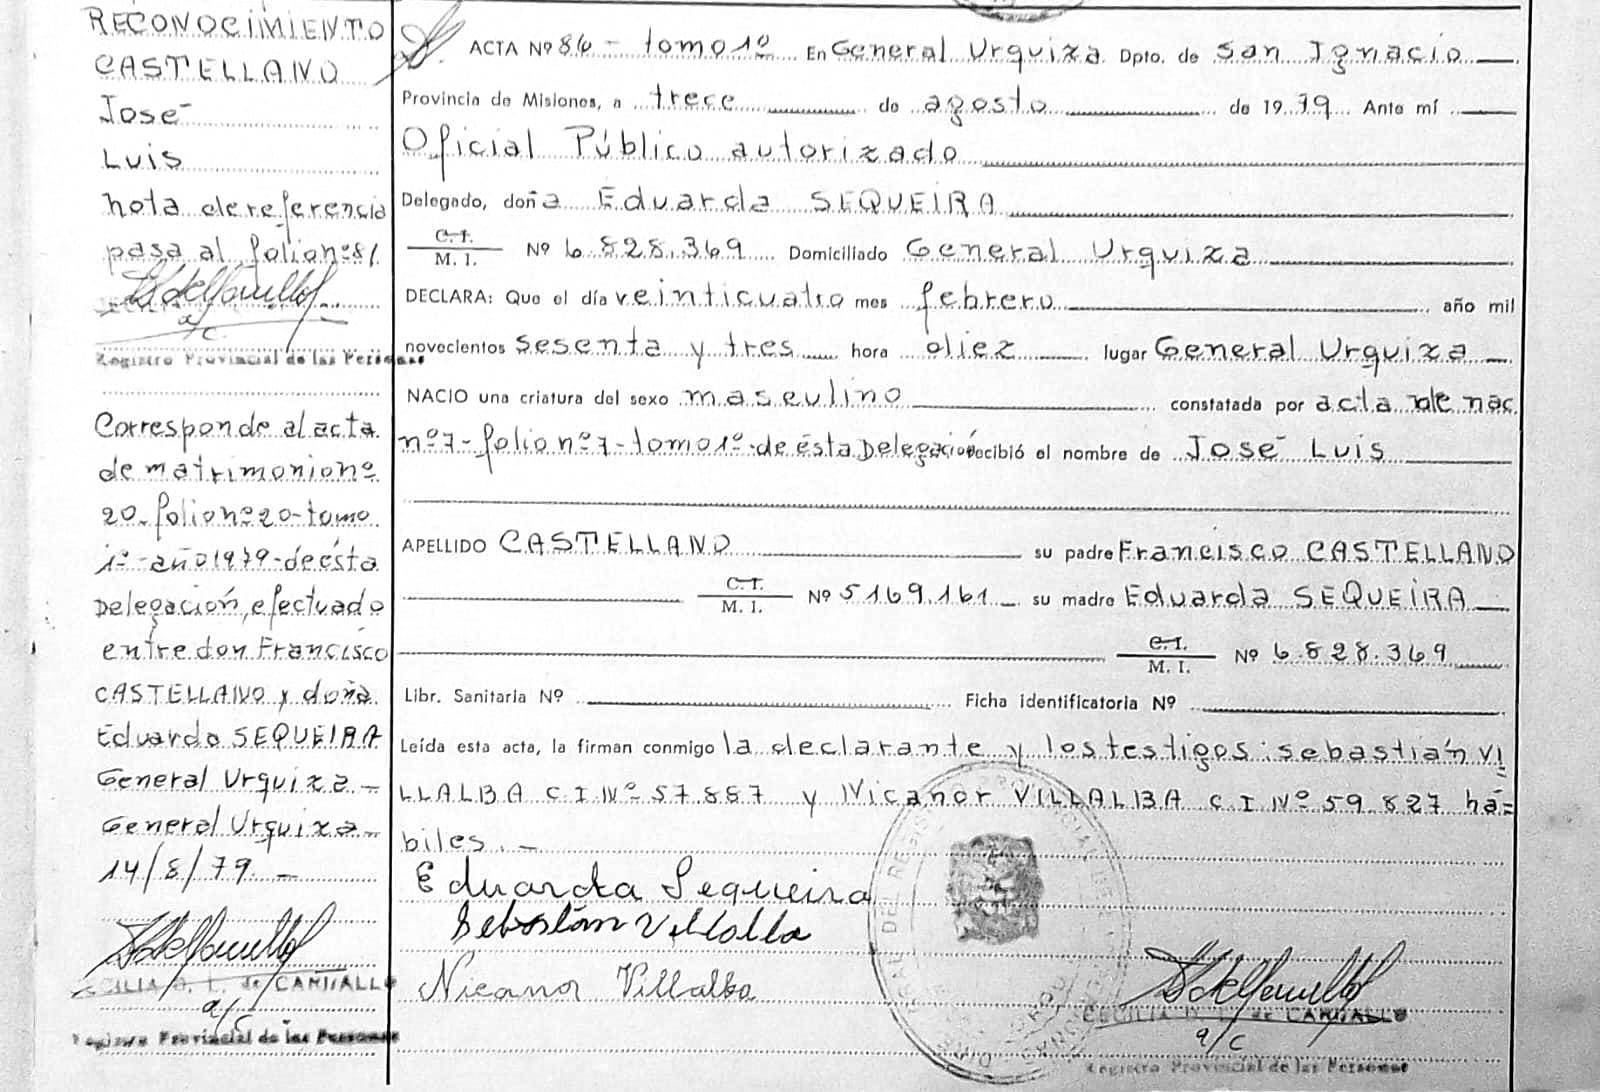 RECONOCIMIENTO
CASTELLANO
José
Luis
nota de referencia
pasa al folio nº 81
a/c
Registro Provincial de las Personas
Corresponde al acta
de matrimonio nº
20-folio nº 20-tomo
1º-año 1979-de ésta
Delegación, efectuado
entre don Francisco
CASTELLANO y doña
Eduarda SEQUEIRA
General Urquiza -
General Urquiza -
14/8/79. -
CECILIA D. L. de CARVALLO
a/c
Registro Provincial de las Personas
ACTA Nº 86 - tomo 1º En General Urquiza Dpto. de San Ignacio
Provincia de Misiones, a trece de agosto de 1979 Ante mí
Oficial Público autorizado
Delegado, doña Eduarda SEQUEIRA
C. I.
M. I. Nº 6.828.369 Domiciliado General Urquiza
DECLARA: Que el día veinticuatro mes febrero, año mil
novecientos sesenta y tres hora diez lugar General Urquiza
NACIO una criatura del sexo masculino constatada por acta de nac.
nº 7-folio nº 7-tomo 1º-de ésta Delegación recibió el nombre de José Luis
APELLIDO CASTELLANO su padre Francisco CASTELLANO
C. I.
M. I. Nº 5.169.161 su madre Eduarda SEQUEIRA
C. I.
M. I. Nº 6.828.369
Libr. Sanitaria Nº Ficha identificatoria Nº
Leída esta acta, la firman conmigo la declarante y los testigos: Sebastián VI
LLALBA C. I Nº 57.887 y Nicanor VILLALBA C. I Nº 59.827 há=
biles. -
Eduarda Sequeira
Sebastián Villalba
Nicanor Villalba
a/c
Registro Provincial de las Personas